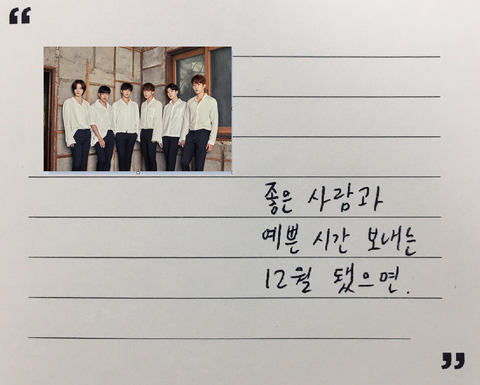 “
좋은 사람과
예쁜 시간 보내는
12월 됐으면.
”